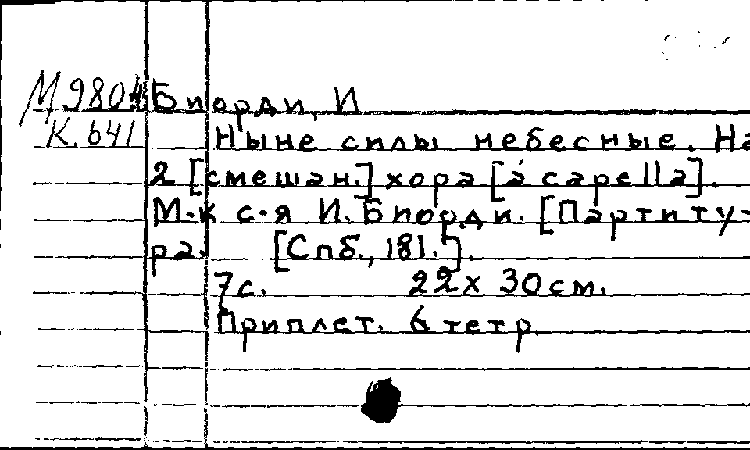 М980 Биорди, И
К.641 Ныне силы небесные. На
2 [смешан.] хора [á capella].
М-к с-я И. Биорди. [Партиту-
ра. [Спб., 181.].
7с. 22х30см.
Приплет. 6 тетр